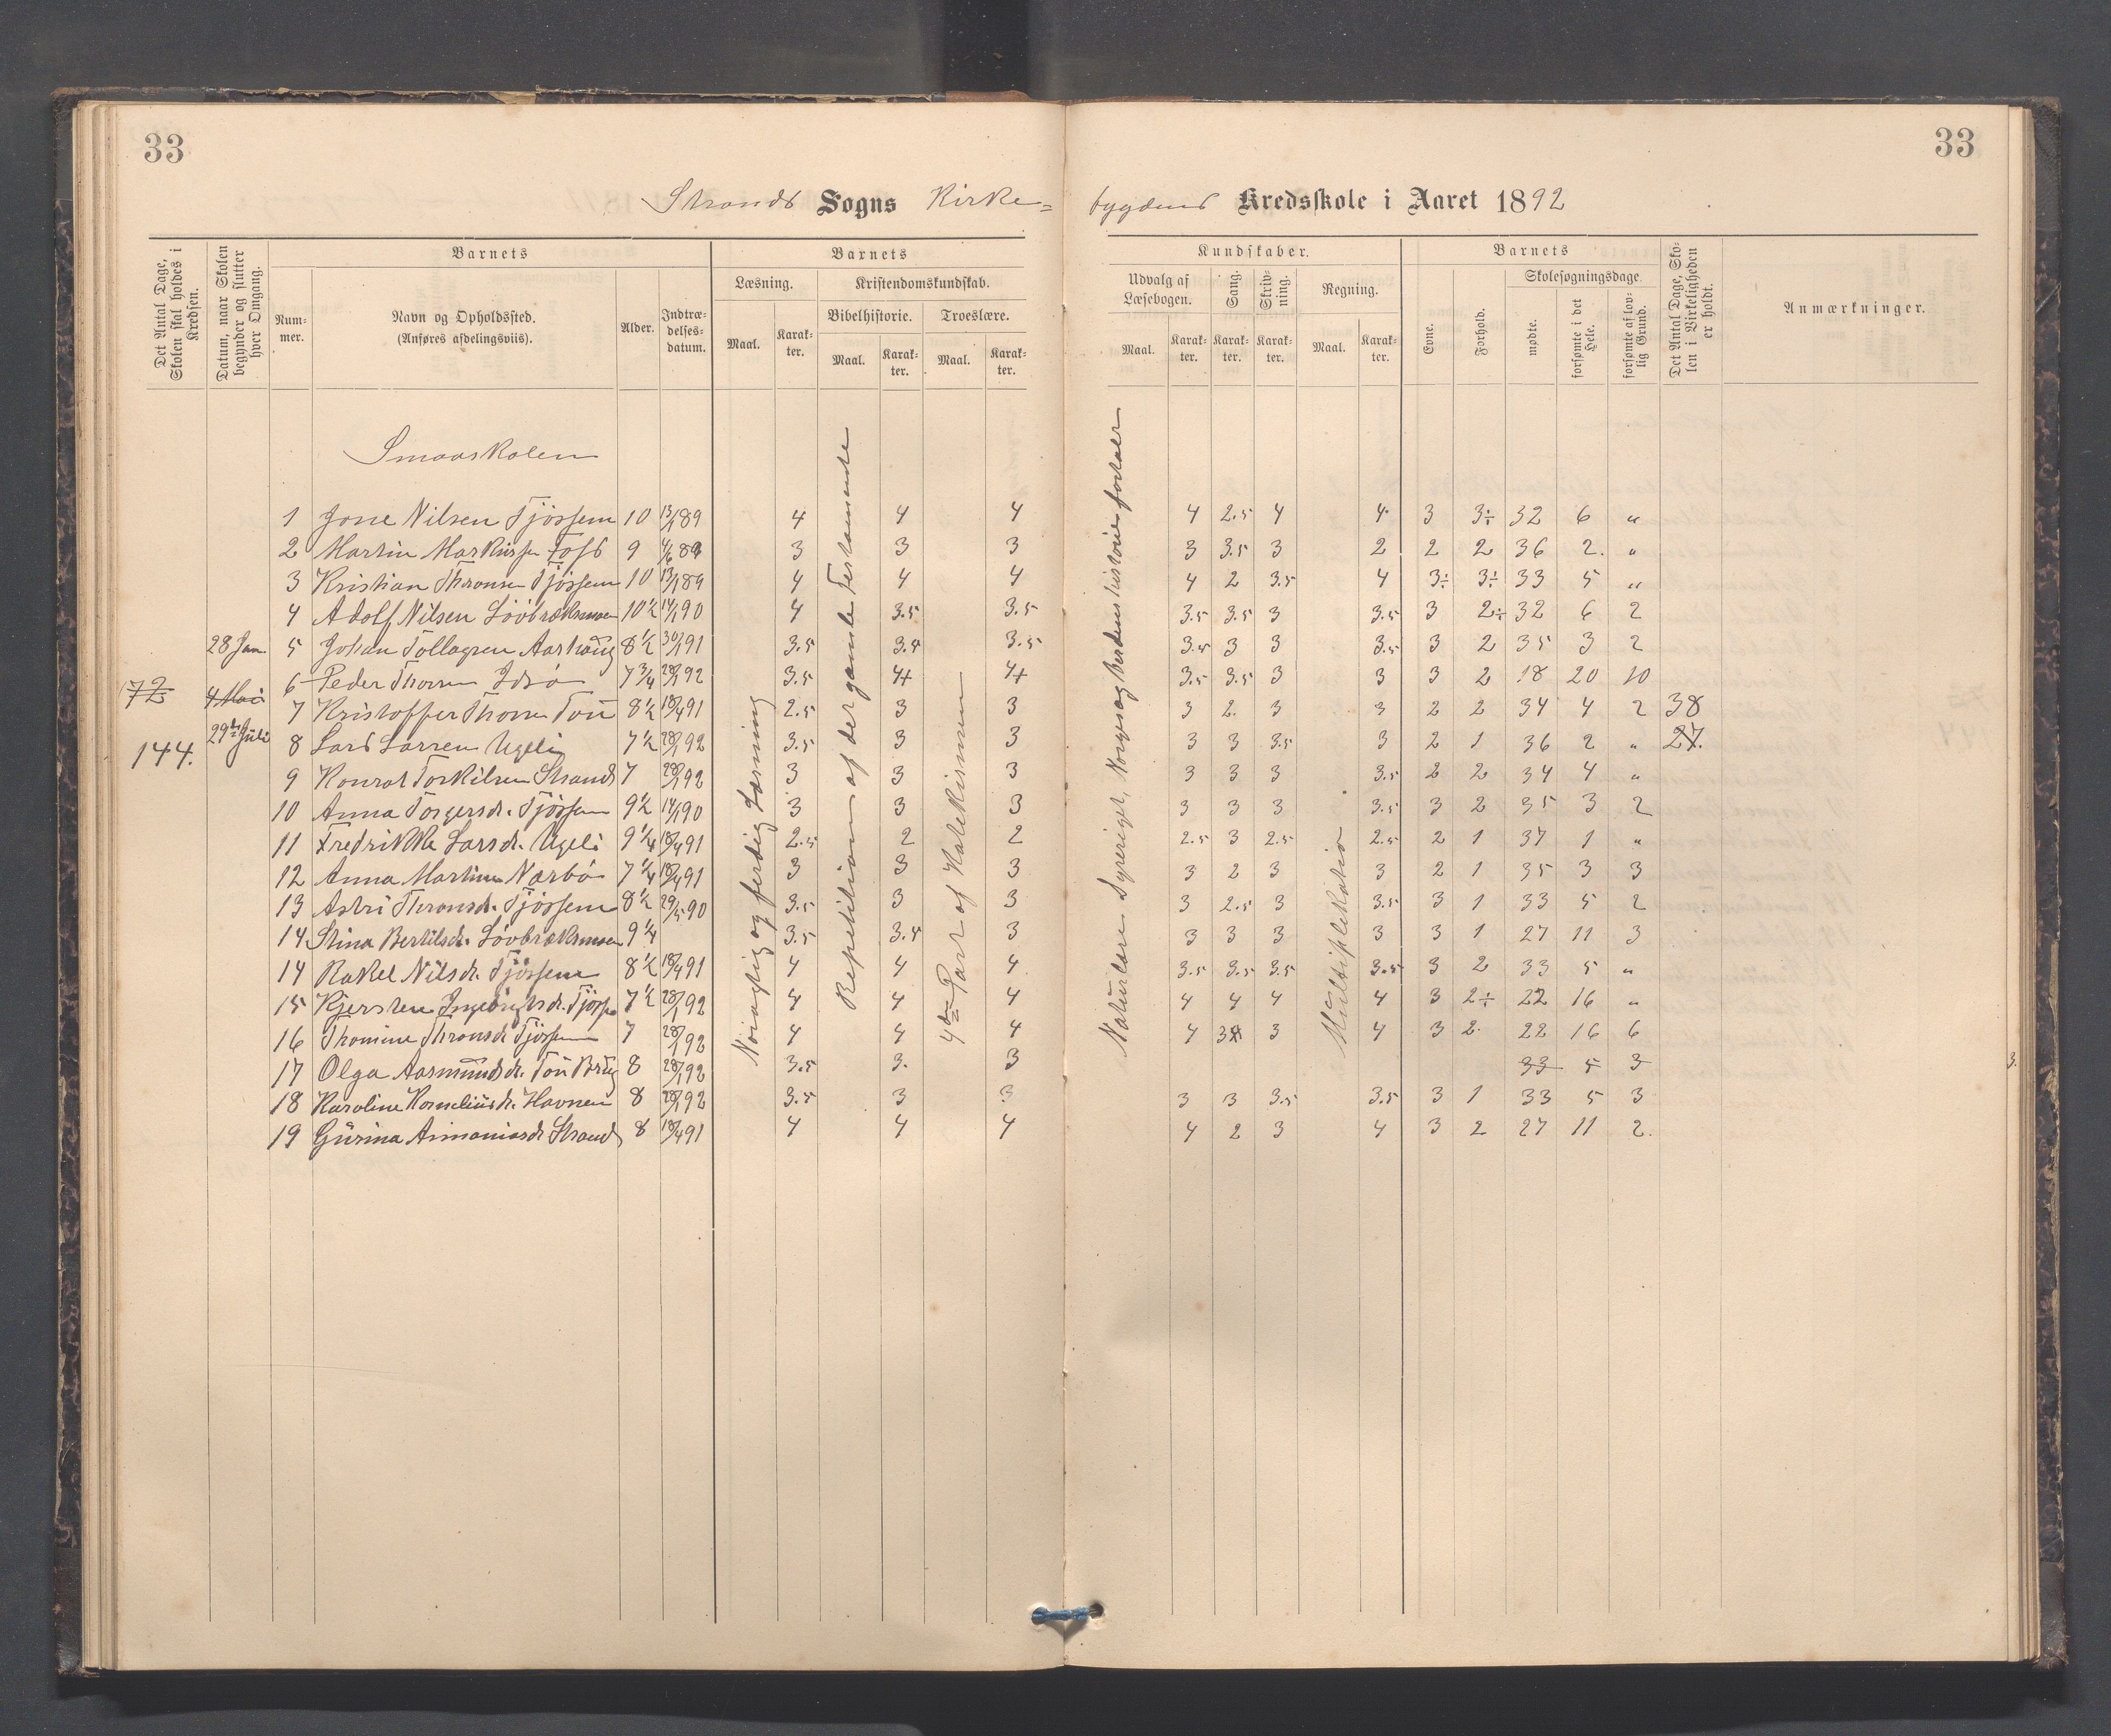 33
33
Strands Sogns Kirke=
bygdens Kredsskole i Aaret 1892
Det Antal Dage, Skolen skal holdes i Kredsen.
Datum, naar Skolen begynder og slutter hver Omgang.
Barnets
Nummer.
Navn og Opholdssted.
(Anføres afdelingsviis).
Alder.
Indtrædelsesdatum.
Barnets
Læsning.
Maal.
Karakter.
Kristendomskundskab.
Bibelhistorie.
Maal.
Karakter.
Troeslære.
Maal.
Karakter.
Kundskaber.
Udvalg af Læsebogen.
Maal.
Karakter.
Sang.
Karakter.
Skrivning.
Karakter.
Regning.
Maal.
Karakter.
Barnets
Evne.
Forhold.
Skolesøgningsdage.
mødte.
forsømte i det Hele.
forsømte af lovlig Grund.
Det Antal Dage, Skolen i Virkeligheden er holdt.
Anmærkninger.
Smaaskolen
Nöiagtig og ferdig Læsning
Repetition af det gamle Testamente
4de Part af Katekismen
Naturlære Dyreriget, Norges og Verdenshistorie fortaler
Multiplikation
1 Jone Nilsen Tjössem 10 13/1 89 4 4 4 4 2.5 4 4 3 3÷ 32 6 "
2 Martin Markussen Tofs 9 4/6 89 3 3 3 3 3.5 3 2 2 2 36 2. "
3 Kristian Thronsen Tjössem 10 13/1 89 4 4 4 4 2 3.5 4 3÷ 3÷ 33 5 "
4 Adolf Nilsen Lövbrækmoen 10½ 14/1 90 4 3.5 3.5 3.5 3.5 3 3.5 3 2÷ 32 6 2
28 Jan 5 Johan Tollagsen Aarhaug 8½ 30/1 91 3.5 3.4 3.5 3.5 3 3 3.5 3 2 35 3 2
72 4 Mai 6 Peder Thorsen Idsö 7¾ 28/1 92 3.5 4+ 4+ 3.5 3.5 3 3 3 2 18 20 10
7 Kristoffer Thorsen Tou 8½ 18/4 91 2.5 3 3 3 2. 3 3 2 2 34 4 2 38
144. 29de Juli 8 Lars Larsen Ugeli 7½ 28/1 92 3.5 3 3 3 3 3.5 3 2 1 36 2 " 27.
9 Konrat Torkilsen Strand 7 28/1 92 3 3 3 3 3 3 3.5 2 2 34 4 "
10 Anna Torgersdr. Tjössem 9½ 14/1 90 3 3 3 3 3 3 3.5 3 2 35 3 2
11 Fredrikke Larsdr. Ugeli 9¼ 18/4 91 2.5 2 2 2.5 3 2.5 2.5 2 1 37 1 "
12 Anna Martine Nærbö 7¼ 18/4 91 3 3 3 3 2 3 3 2 1 35 3 3
13 Astri Thronsdr. Tjössem 8½ 29/5 90 3.5 3 3 3 2.5 3 3.5 3 1 33 5 2
14 Stina Bertilsdr. Lövbrækmoen 9¼ 3.5 3.4 3 3 3 3 3 3 1 27 11 3
14 Rakel Nilsdr. Tjössem 8½ 18/4 91 4 4 4 3.5 3.5 3.5 3.5 3 2 33 5 "
15 Kjersten Ingebrigtsdr. Tjösse 7½ 28/1 92 4 4 4 4 4 4 4 3 2÷ 22 16 "
16 Thomine Thronsdr Tjössem 7 28/1 92 4 4 4 4 3 3 4 3 2. 22 16 6
17 Olga Aasmundsdr. Tou Brug 8 28/1 92 3.5 3. 3 33 5 3
18 Karoline Korneliusdr. Havnen 8 28/1 92 3.5 3 3 3 3 3.5 3.5 3 1 33 5 3
19 Gurina Animaniasdr Strand 8 18/4 91 4 4 4 4 2 3 4 3 2 27 11 2.